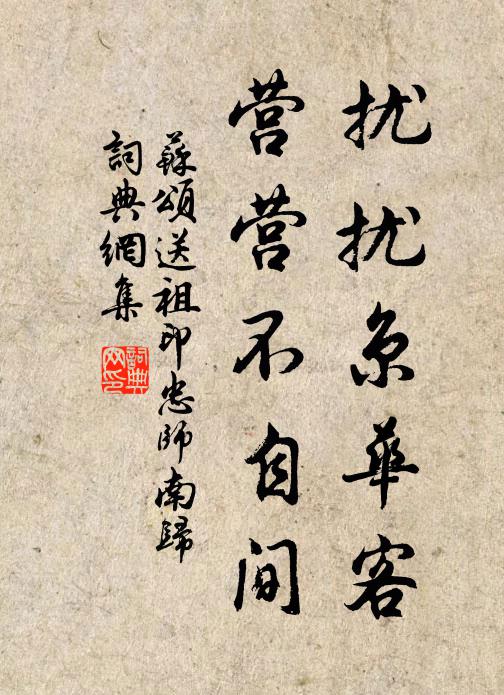 扰扰京华客
营营不自间
蘇頌送祖印忠師南歸
詞典網集
詞典網印